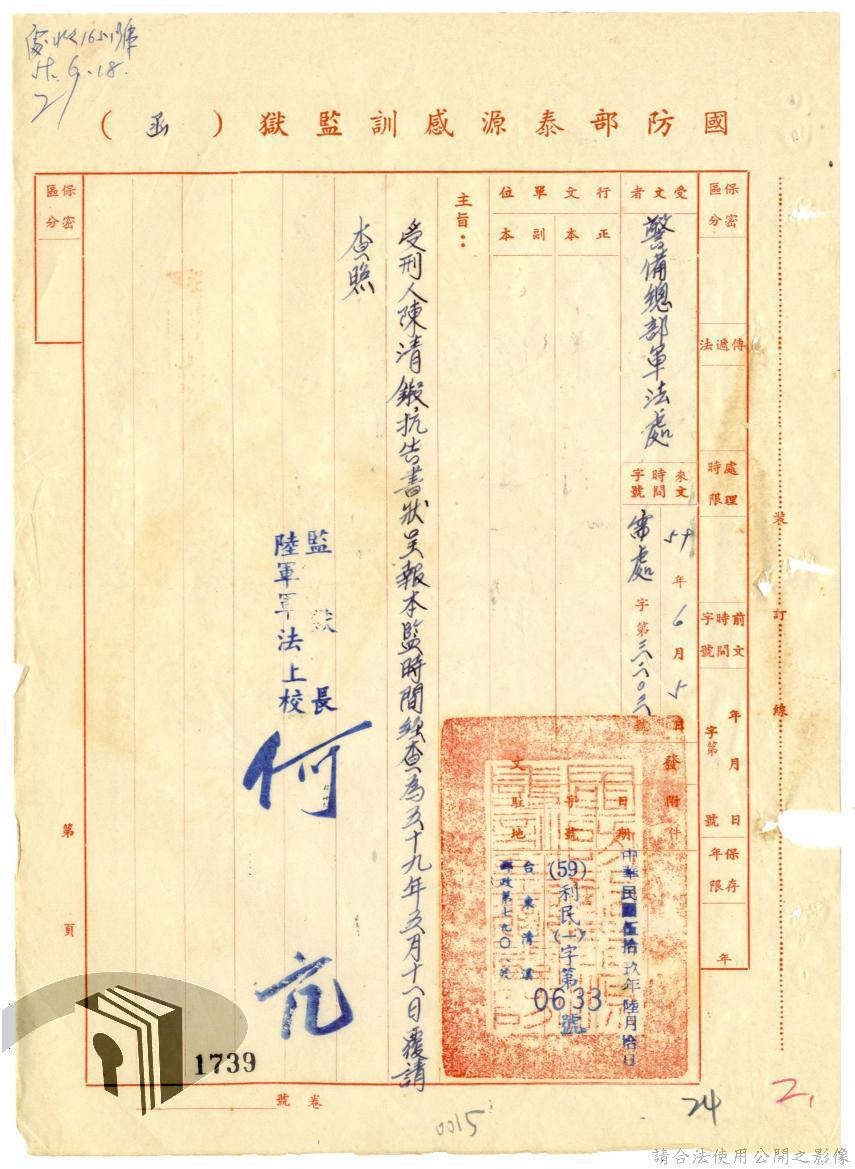 59.6.18.
21
國防部泰源感訓監獄（函）
保密區分
傳遞法
處理時限
前文時間字號
年月日
字第號
保存年限
年
受文者
警備總部軍法處
來文時間字號
59年6月5日
需處字第三六〇三號
行文單位
正本
副本
發文
附件
日期
中華民國伍拾玖年陸月拾日
字號
(59)利民(一)字第0633號
駐地
台東清溪
郵政第七九〇八號
主旨：
受刑人陳清鍛抗告書狀呈報本監時間經查為五十九年五月十六日覆請
查照
監獄長
陸軍軍法上校
何
保密區分
第頁
裝訂線
1739
卷號
0015
24
2,
請合法使用公開之影像